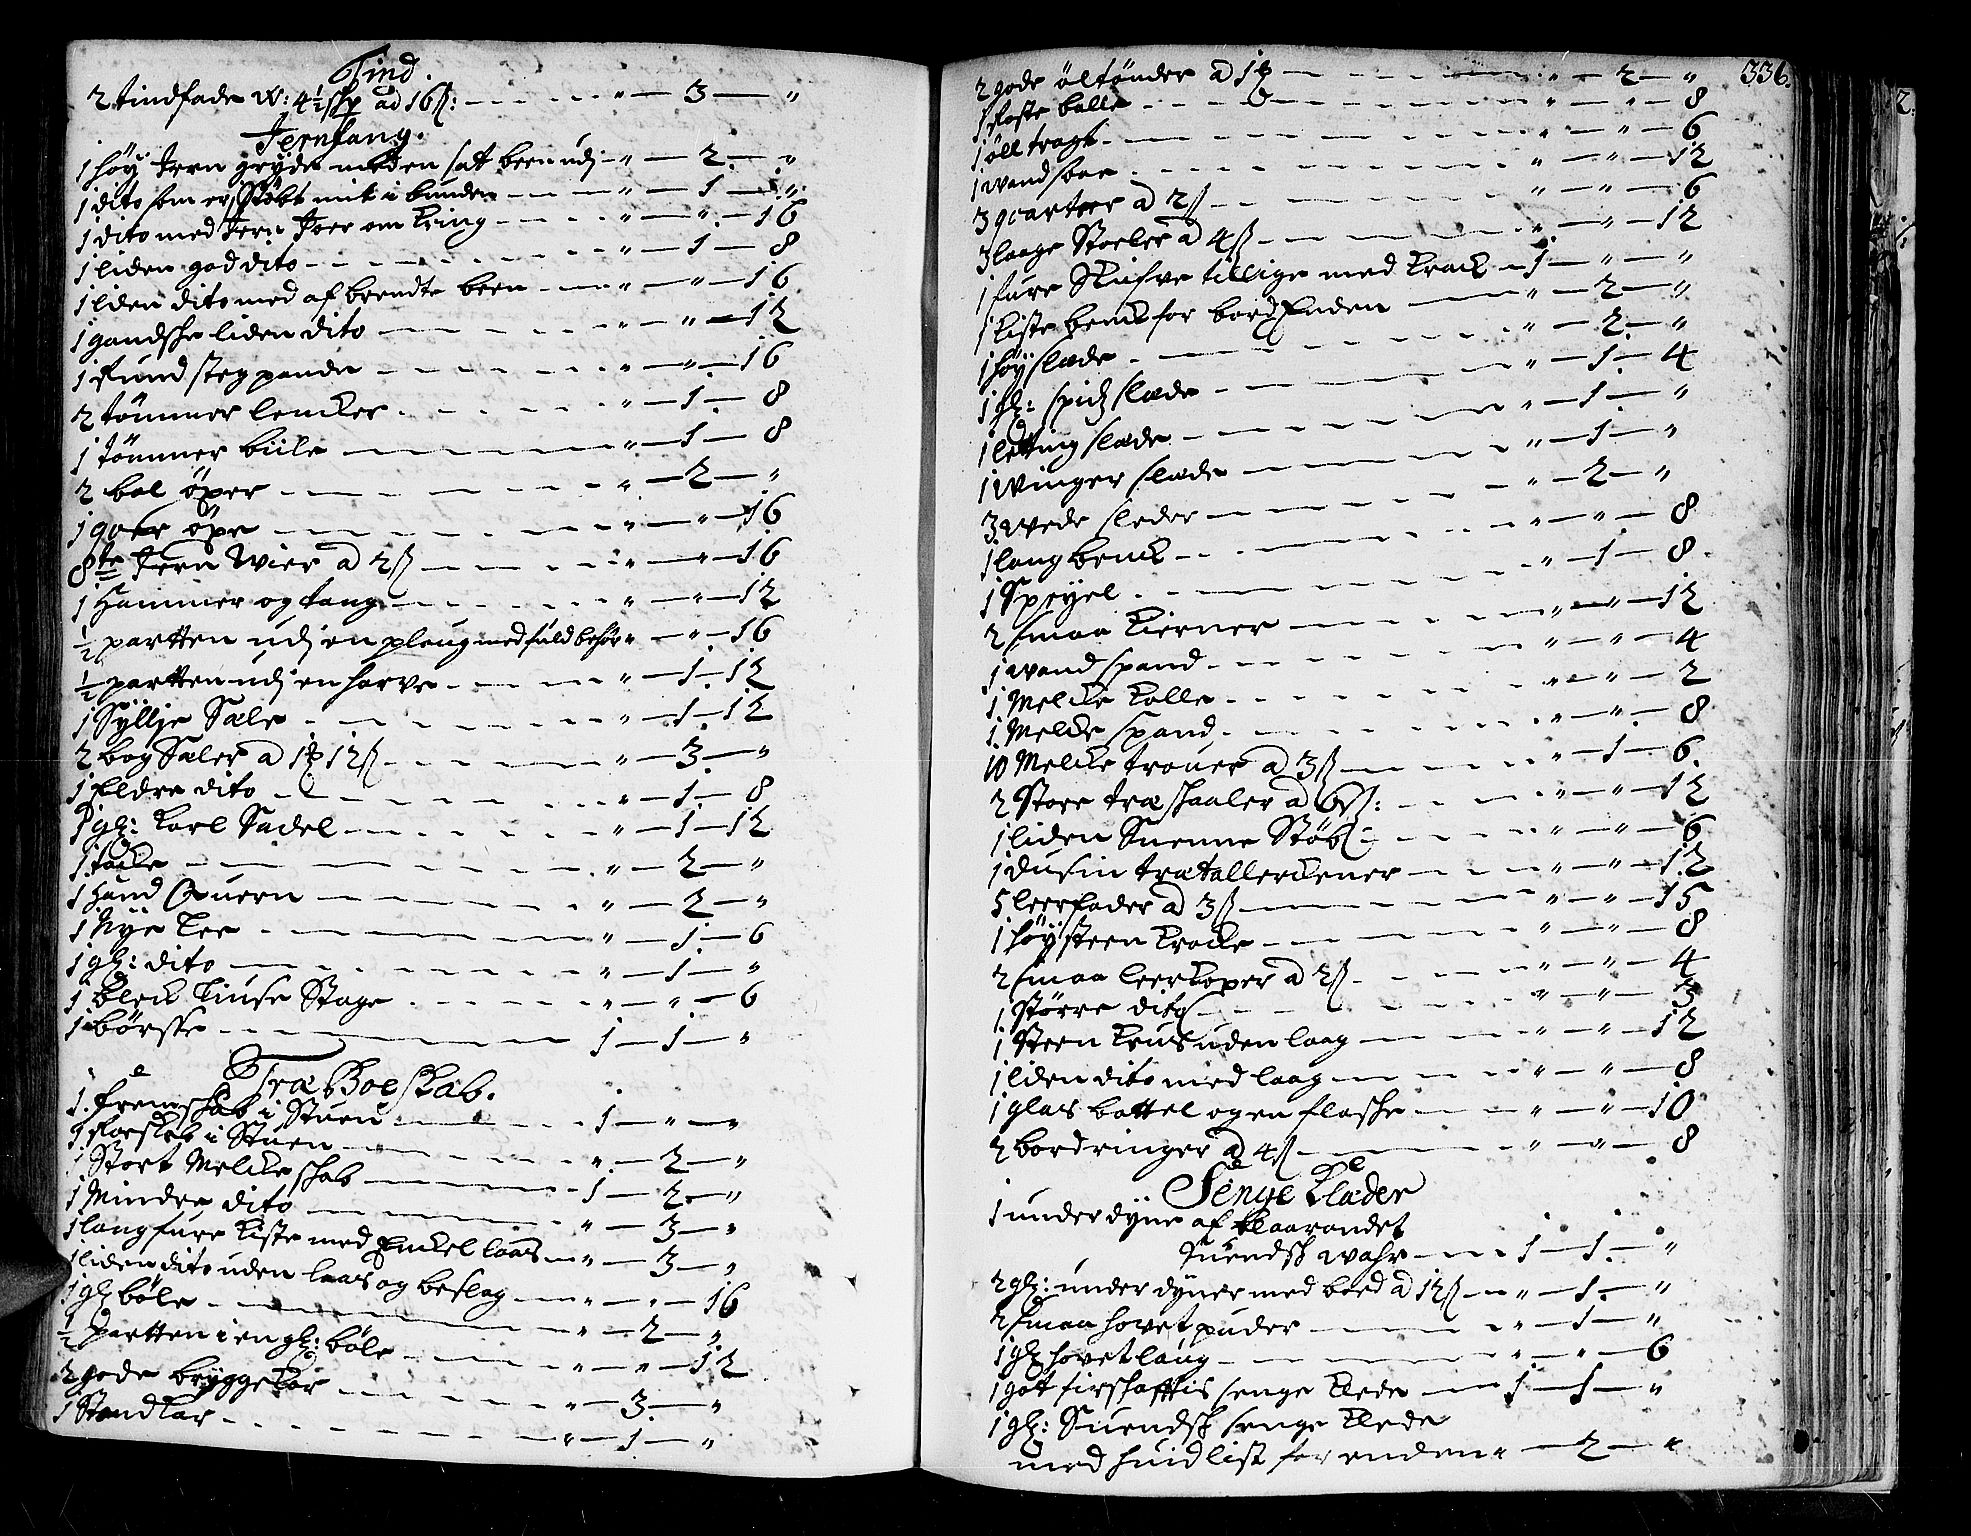 Tind.
2 tindfade W: 4½ skp ad 16ß: - " - 3 - "
Jernfang.
1 höy Jern gryde med en satt been udj - " - 2 - "
1 dito som er Stöbt mit i bunden - " - 1 - "
1 dito med Jern Joer om Kring - " - " - 16
1 liden god dito - " - 1 - 8
1 liden dito med af brendte been - " - " - 16
1 gandske liden dito - " - " - 12
1 Rund steg pande - " - " - 16
2 tömmer lencker - " - 1 - 8
1 tömmer biile - " - 1 - 8
2 bol öxer - " - 2 - "
1 goer öxe - " - " - 16
8te Jern Wier a 2ß - " - " - 16
1 Hammer og tang - " - " - 12
½ partten udj en ploug med fuld behör " - " - 16
½ partten udj en harve - " - 1 - 12
1 Syllje Sæle - " - 1 - 12
2 bog Sæler a 1 12ß - " - 3 - "
1 Eldre dito - " - 1 - 8
1 gl: Karl Sadel - " - 1 - 12
1 tacke - " - 2 - "
1 Hand Quern - " - 2 - "
1 Nye Lee - " - 1 - 6
1 gl: dito - " - 1 - "
1 bleck Liuse Stage - " - " - 6
1 börsse - 1 - 1 - "
Træ Boeskab.
1 fremskab i Stuen - 1 - " - "
1 Roeskab i Stuen - " - 2 - "
1 Stort Melcke skab - 1 - 2 - "
1 Mindre dito - " - 3 - "
1 lang fure Kiste med Enckel laas - " - 3 - "
1 liden dito uden laas og beslag - " - " - 16
1 gl böle - " - 2 - "
½ partten i en gl: böle - " - " - 12
2 gode bryggekar - " - 3 - "
1 Stand Kar - " - 1 - "
336.
2 gode öltönder a 1 - " - 2 - "
1 Roste balle - " - " - 8
1 öll tragt - " - " - 6
1 vand saae - " - " - 12
3 qvarteer a 2ß - " - " - 6
3 laage Stoeler a 4ß - " - " - 12
1 fure Skufve tillige med Krack - 1 - " - "
1 Kiste benck for bord Enden - " - 2 - "
1 höy slæde - " - 2 - "
1 gl: spids slæde - " - 1 - 4
1 letting slæde - " - 1 - "
1 Winger slæde - " - 1 - "
3 wede sleder - " - 2 - "
1 lang benck - " - " - 8
1 Speyel - " - 1 - 8
2 smaa Kierner - " - " - 12
1 wand spand - " - " - 4
1 Melcke Kolle - " - " - 2
1 Melcke spand - " - " - 8
10 Melcke trouer a 3ß - " - 1 - 6
2 Store træ skaaler a 6ß: - " - " - 12
1 liden Suenne Stöb: - " - " - 6
1 Dusin træ tallerckener - " - " - 12
5 leerfader a 3ß - " - " - 15
1 höy steen Krucke - " - " - 8
2 smaa leerkoper a 2ß - " - " - 4
1 större dito - " - " - 3
1 Steen Kruus uden laag - " - " - 12
1 liden dito med laag - " - " - 8
1 glas battel og en flaske - " - " - 10
2 bordringer a 4ß - " - " - 8
Senge Klæder
1 under dyne af blaarandet
Suendsk wahr - 1 - 1 - "
2 gl: under dyner med boed a 12ß - " - 1 - "
2 smaa hovet puder - " - 1 - "
1 gl hovetlaug - " - " - 6
1 got firskafftis senge Klede - 1 - 1 - "
1 gl: Suendsk senge Klede
med huid list for enden " - 2 - "